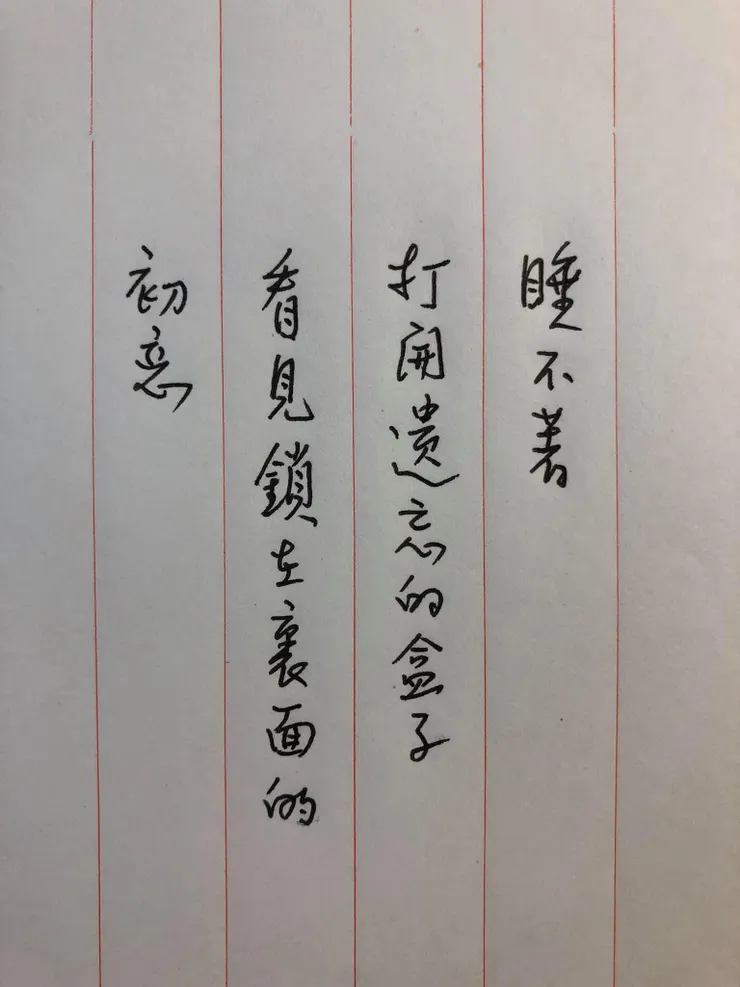 睡不著
打開遺忘的盒子
看見鎖在裏面的
初意